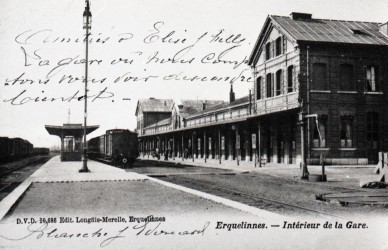 Amitiés à Elise & Julles
La gare où nous comp
tons vous voir descendre
bientôt.
D.V.D. 10,586 Edit. Longlis-Merelle, Erquelinnes
Erquelinnes. — Intérieur de la Gare.
Blanche &